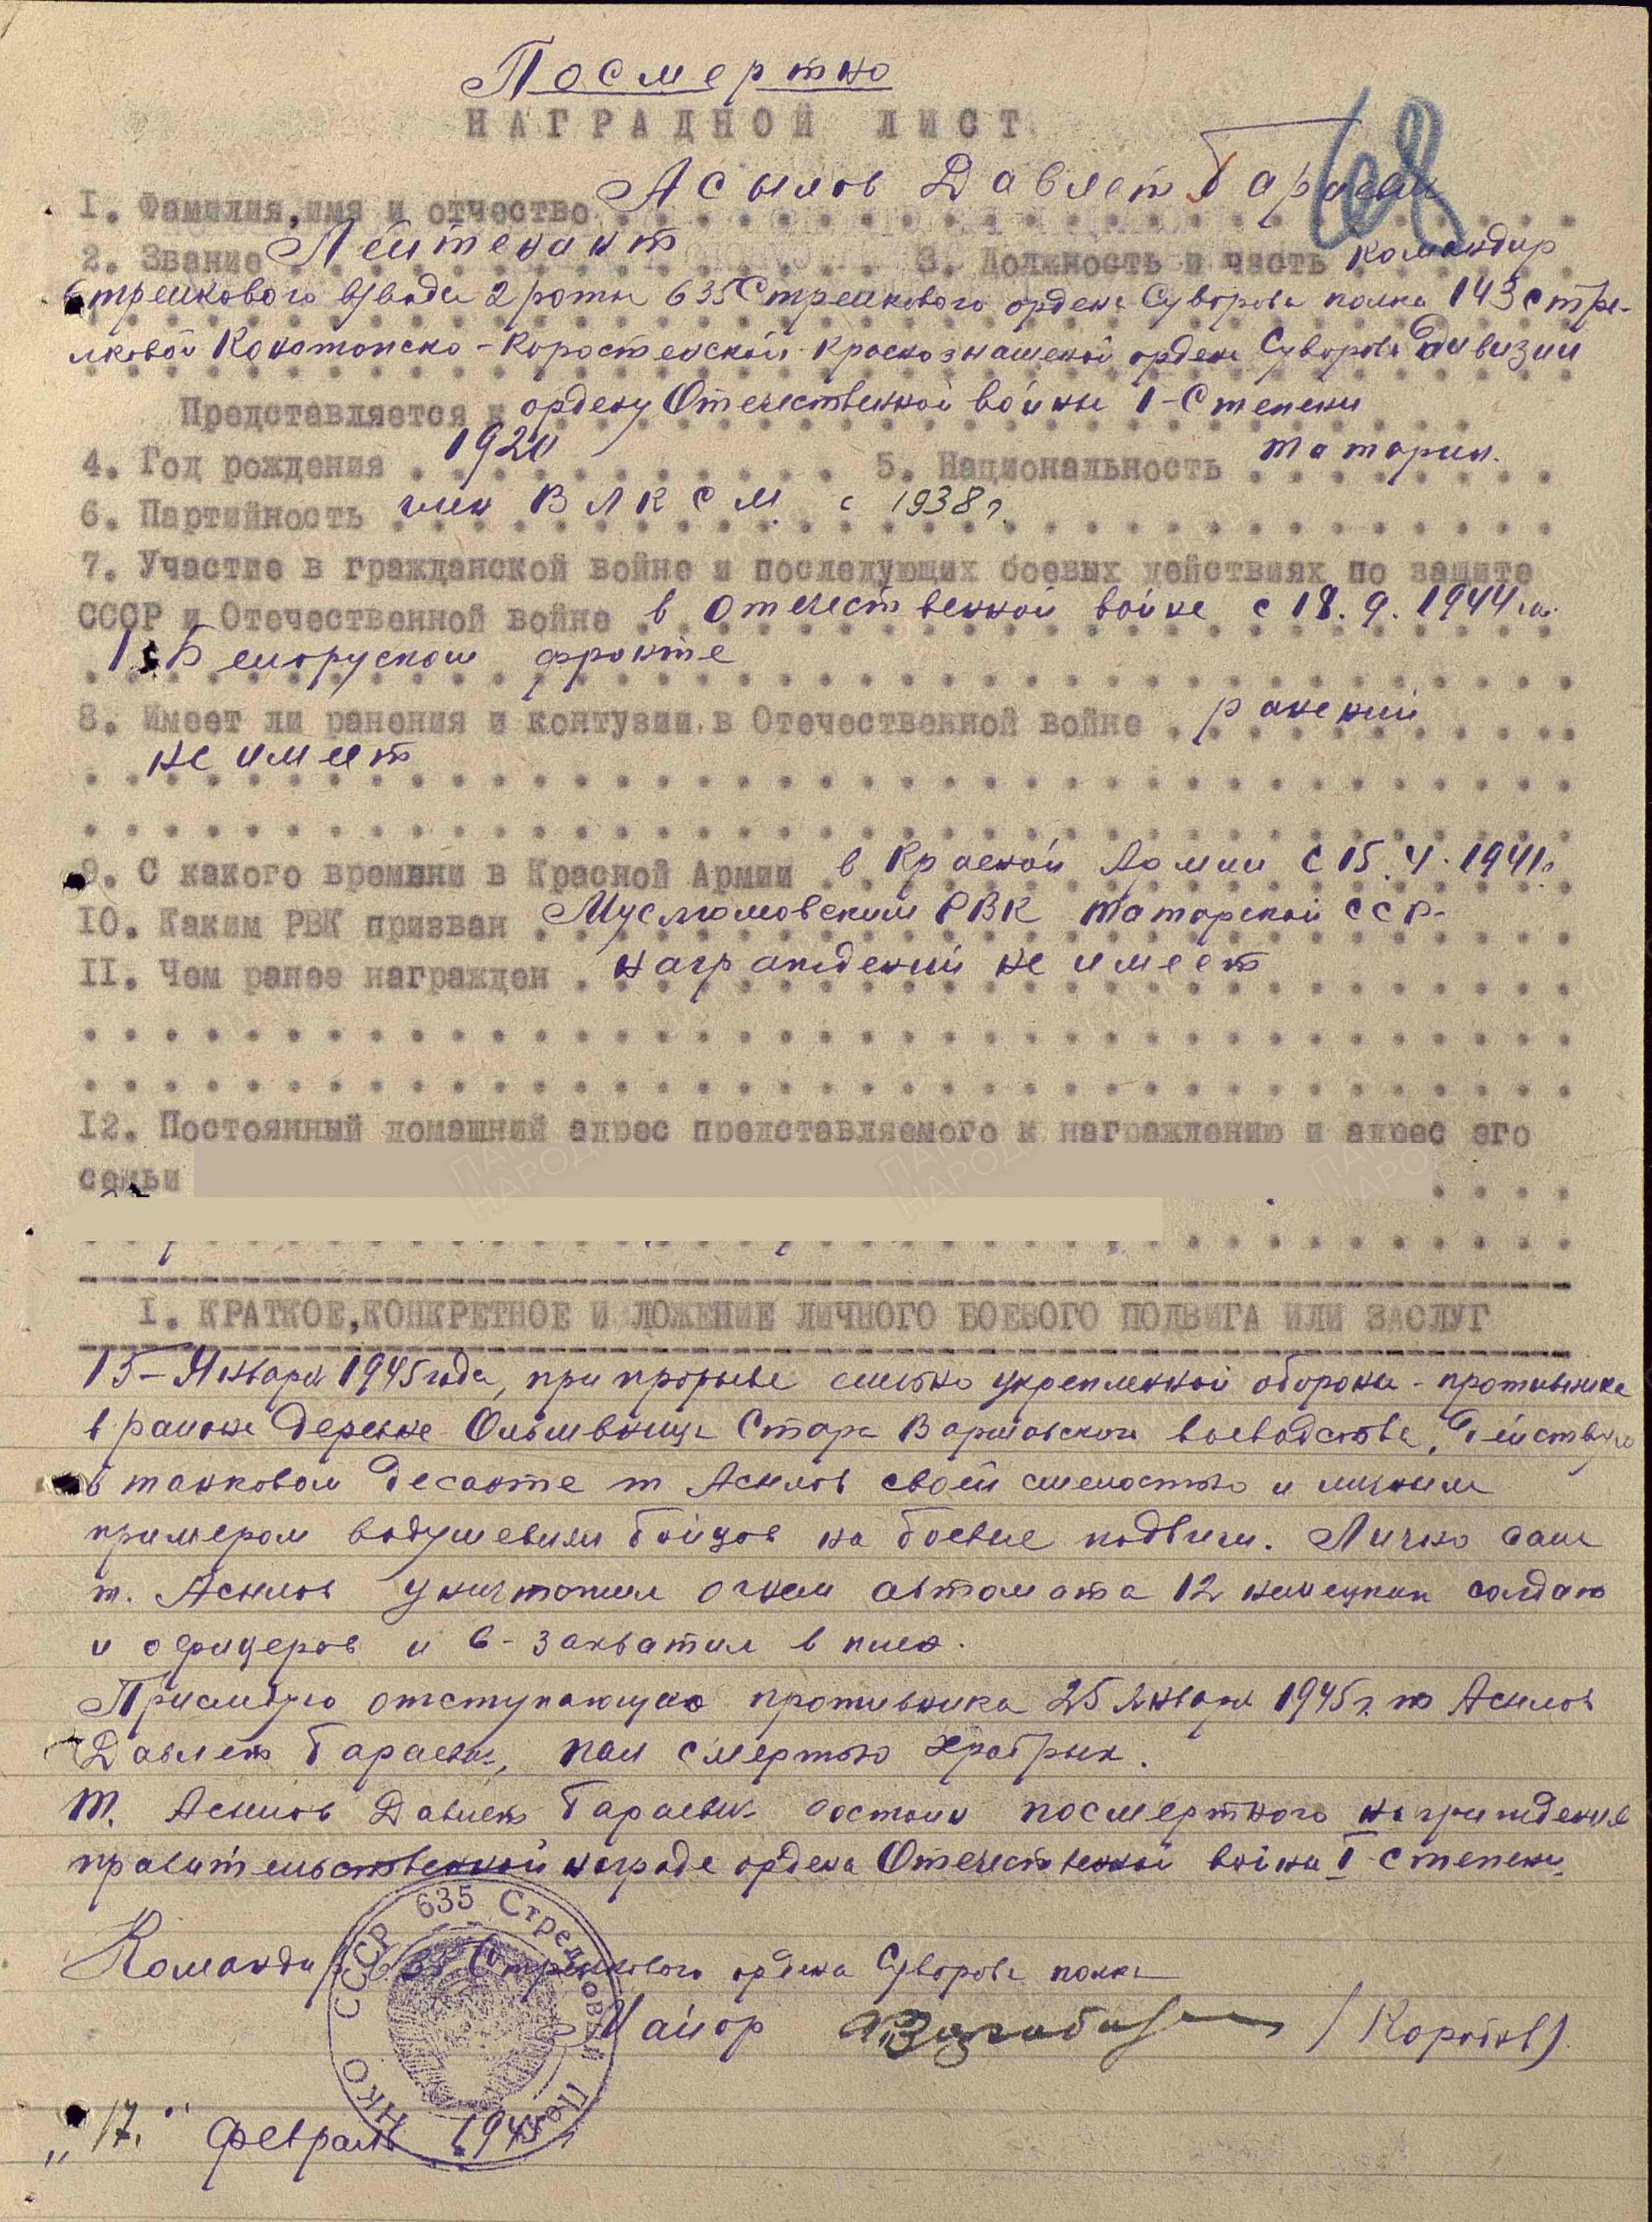 Посмертно
НАГРАДНОЙ ЛИСТ
68
1. Фамилия, имя и отчество Асылов Давлет Гараевич
2. Звание Лейтенант 3. Должность и часть командир
стрелкового взвода 2 роты 635 Стрелкового ордена Суворова полка 143 стре-
лковой Конотопско-Коростенской краснознаменой ордена Суворова дивизии
Представляется к ордену Отечественной войны I-Степени
4. Год рождения 1920 5. Национальность татарин.
6. Партийность член ВЛКСМ с 1938 г.
7. Участие в гражданской войне и последующих боевых действиях по защите
СССР и Отечественной войне в отечественной войне с 18.9.1944 на
1 Белоруском фронте
8. Имеет ли ранения и контузии в Отечественной войне ранений
не имеет
9. С какого времени в Красной Армии в Красной Армии с 15.4.1941г.
10. Каким РВК призван Муслюмовским РВК татарской ССР-
11. Чем ранее награжден награждений не имеет
12. Постоянный домашний адрес представляемого к награждению и адрес его
семьи
I. КРАТКОЕ, КОНКРЕТНОЕ И ЛОЖЕНИЕ ЛИЧНОГО БОЕВОГО ПОДВИГА ИЛИ ЗАСЛУГ
15-Января 1945 года, при прорыве сильно укрепленной обороны - противника
в районе деревне Стара Варшавского воеводства, действуя
в танковом десанте т Асылов своей смелостью и личным
примером водушевлял бойцов на боевые подвиги. Лично сам
т. Асылов уничтожил огнем автомата 12 немецких солдат
и офицеров и 6-захватил в плен.
Приследуя отступающую противника 25 Января 1945 г. т Асылов
Давлет Гараевич, пал смертью храбрых.
Т. Асылов Давлет Гараевич достоин посмертного награждения
правительственной награде ордена Отечественной войны I степени.
Командир 635 Стрелкового ордена Суворова полка
Майор /Коробов/
НКО СССР 635 Стрелковый Полк
"17." февраля 1945 г.